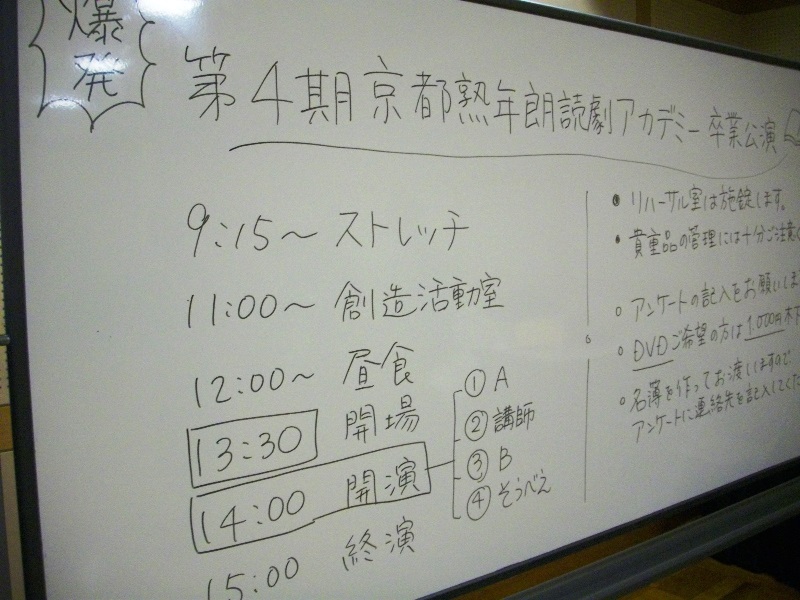 爆発
第4期京都熟年朗読劇アカデミー卒業公演
9:15〜 ストレッチ
11:00〜 創造活動室
12:00〜 昼食
13:30 開場
14:00 開演
① A
② 講師
③ B
④ そうべえ
15:00 終演
• リハーサル室は施錠します。
• 貴重品の管理には十分ご注意
○ アンケートの記入をお願いしま
○ DVDご希望の方は1.000円
○ 名簿を作ってお渡しますので
アンケートに連絡先を記入してくだ